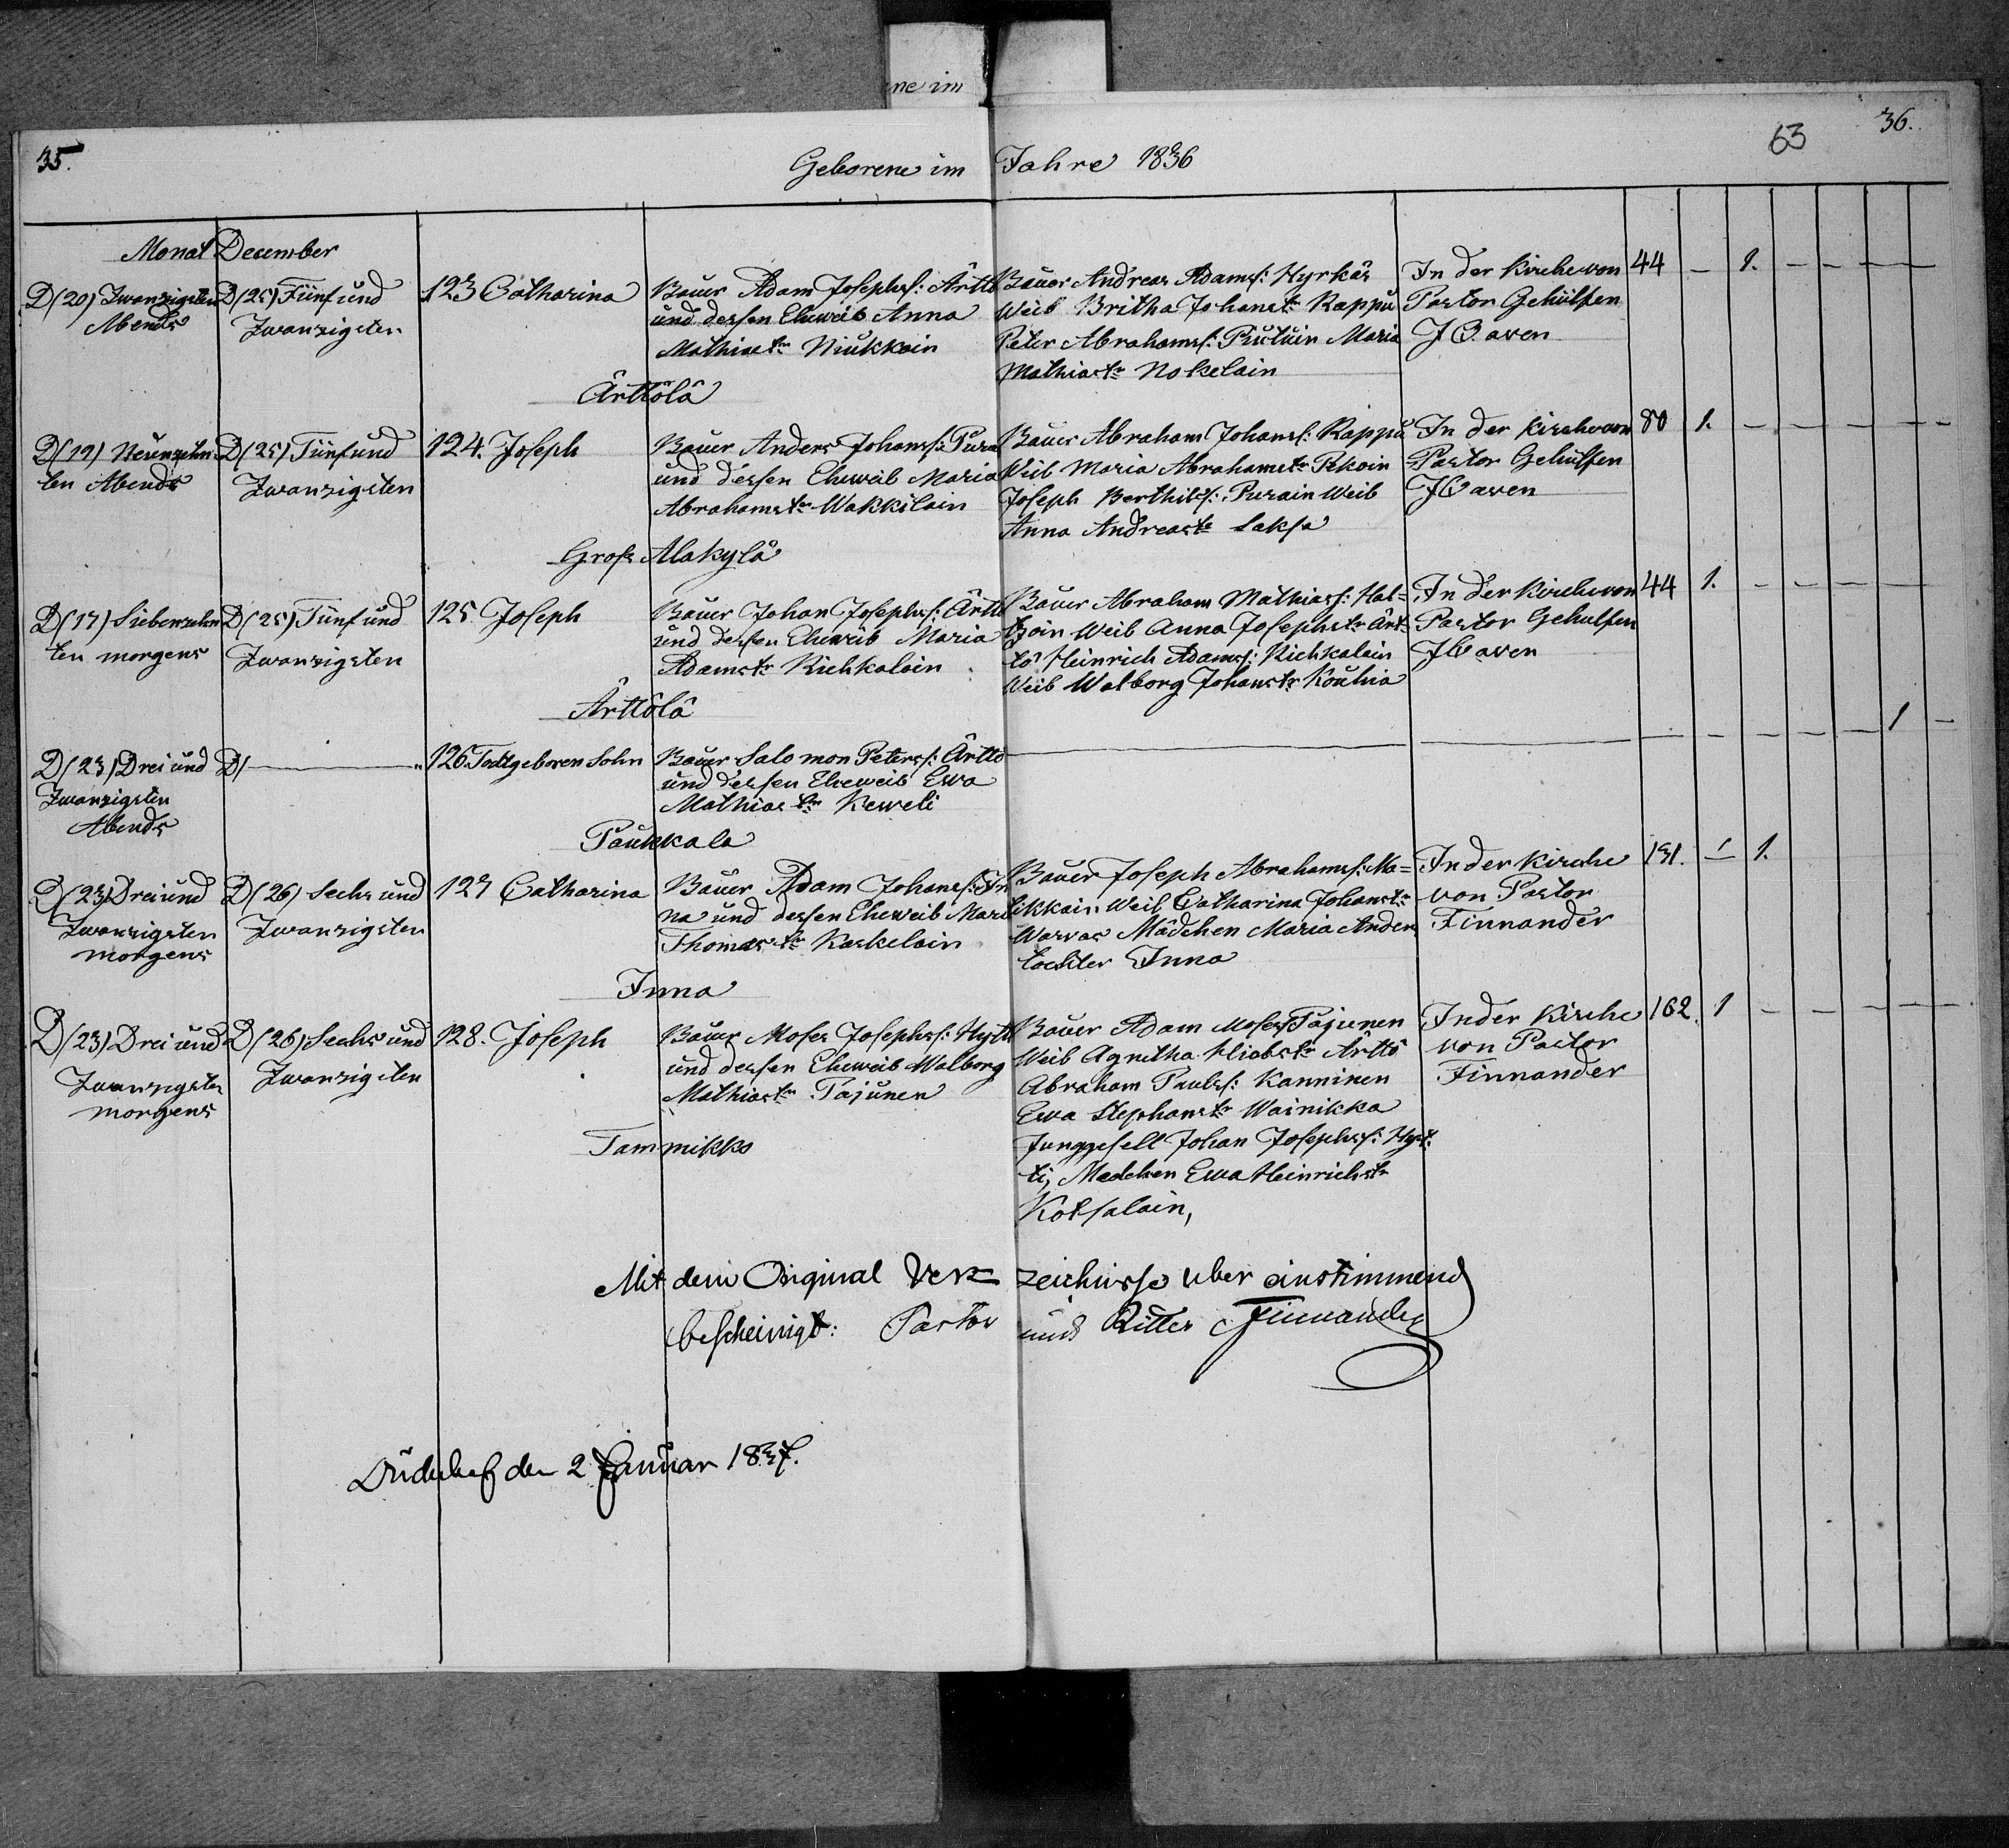 ne im
35.
63
36.
Geborene im Jahre 1836
Monat December
D (20) Zwanzigsten
Abends
D (25) Fünf und
Zwanzigsten
123 Catharina
Bauer Adam Josephs: Ärttö
und dessen Eheweib Anna
Mathiastr Niukkain
Ärttölä
Bauer Andreas Adams: Hyrkäs
Weib Britha Johanstr Rappu
Peter Abrahams: Piutuin Maria
Mathiastr Nokelain
In der Kirche von
Pastor Gehülfen
44 — 1. — — — — —
D (19) Neunzehn
ten Abends
D (25) Fünf und
Zwanzigsten
124. Joseph
Bauer Anders Johans: Pura
und dessen Eheweib Maria
Abrahamstr Wakkilain
Gross Alakylä
Bauer Abraham Johans: Rappu
Weib Maria Abrahamstr Pekoin
Joseph Berthils: Purain Weib
Anna Andreastr Laksa
In der Kirche von
Pastor Gehülfen
80 1. — — — — — —
D (17) Siebenzehn
ten morgens
D (25) Fünf und
Zwanzigsten
125. Joseph
Bauer Johan Josephs: Ärttö
und dessen Eheweib Maria
Adamstr Kichkalain
Ärttölä
Bauer Abraham Mathias: Hat=
tzoin Weib Anna Josephstr Ärt=
tö Heinrich Adams: Kichkalain
Weib Walborg Johanstr Kouhia
In der Kirche von
Pastor Gehulfen
44 1. — — — — — —
D (23) Drei und
Zwanzigsten
Abends
D/ —
126. Todtgeboren Sohn
Bauer Salomon Peters: Ärttö
und dessen Eheweib Ewa
Mathiastr Keweli
Paukkala
— — — — — — — 1 —
D (23) Drei und
Zwanzigsten
morgens
D (26) Sechs und
Zwanzigsten
127 Catharina
Bauer Adam Johans: In
na und dessen Eheweib Mari
Thomastr Kaskelain
Inna
Bauer Joseph Abrahams: Ma=
tikkain Weib Catharina Johanstr
Warvas Mädchen Maria Anders
tochter Inna
In der Kirche
von Pastor
Finnander
131. — 1.
D (23) Drei und
Zwanzigsten
morgens
D (26) Sechs und
Zwanzigsten
128. Joseph
Bauer Moses Josephs: Hytti
und dessen Eheweib Walborg
Mathiastr Tajunen
Tammikko
Bauer Adam Moses: Tajunen
Weib Agnetha Hiobstr Ärttö
Abraham Pauls: Kanninen
Ewa Stephanstr Wainikka
Junggesell Johan Josephs: Hyt-
ti, Medchen Ewa Heinrichstr
Kotsalain,
In der Kirche
von Pastor
Finnander
162. 1 — — — — — —
Mit dem Original Verzeichnisse uber einstimmend
bescheinigt: Pastor und Ritter Finnander
Duderhof den 2 Januar 1837.